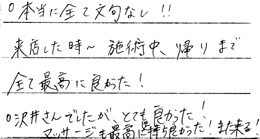 ○本当に全て文句なし!!
来店した時~施術中、帰りまで
全て最高に良かった!
○沢井さんでしたが、とても良かった!
マッサージも最高に気持ち良かった!また来る!